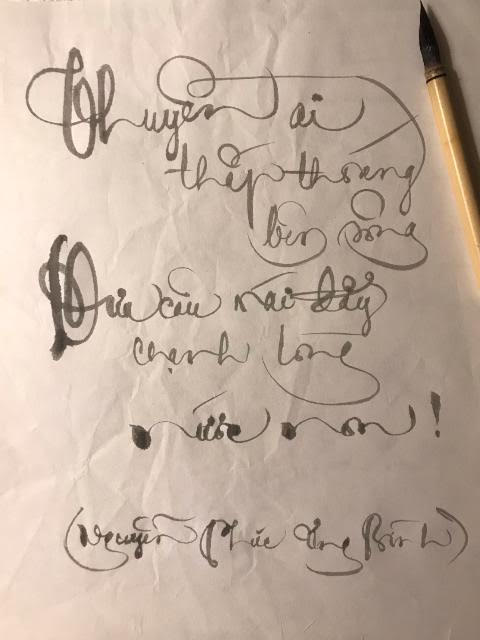 Thuyền ai
thấp thoáng
bên sông
Đưa câu mái đẩy
chạnh lòng
nước non!
(Nguyễn Phúc Ưng Bình)